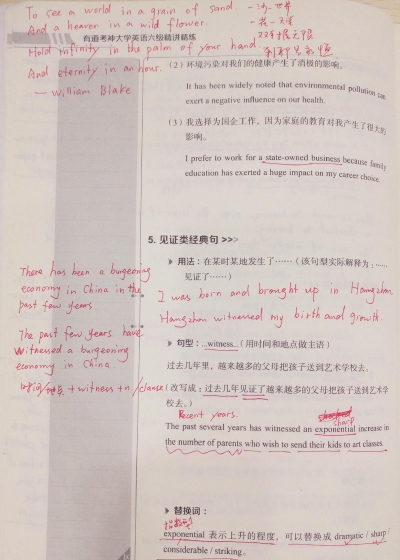 To see a world in a grain of sand 一沙一世界
And a heaven in a wild flower. 一花一天堂
有道考神大学英语六级精讲精练
Hold infinity in the palm of your hand
And eternity in an hour.
— William Blake
(2) 环境污染对我们的健康产生了消极的影响。
It has been widely noted that environmental pollution can
exert a negative influence on our health.
(3) 我选择为国企工作，因为家庭的教育对我产生了很大的
影响。
I prefer to work for a state-owned business because family
education has exerted a huge impact on my career choice.
5. 见证类经典句 >>>
用法：在某时某地发生了……（该句型实际解释为：……
见证了……）
There has been a burgeoning
economy in China in the
past few years
I was born and brought up in Hangzhou
Hangzhou witnessed my birth and growth.
The past few years have
witnessed a burgeoning
economy in China.
时间/地点 + witness + n /clause
句型：...witness...（用时间和地点做主语）
过去几年里，越来越多的父母把孩子送到艺术学校去。
(改写成：过去几年见证了越来越多的父母把孩子送到艺术学
校去。)
Recent years.
sharp
The past several years has witnessed an exponential increase in
the number of parents who wish to send their kids to art classes.
替换词：
指数型
exponential 表示上升的程度，可以替换成 dramatic / sharp /
considerable / striking。